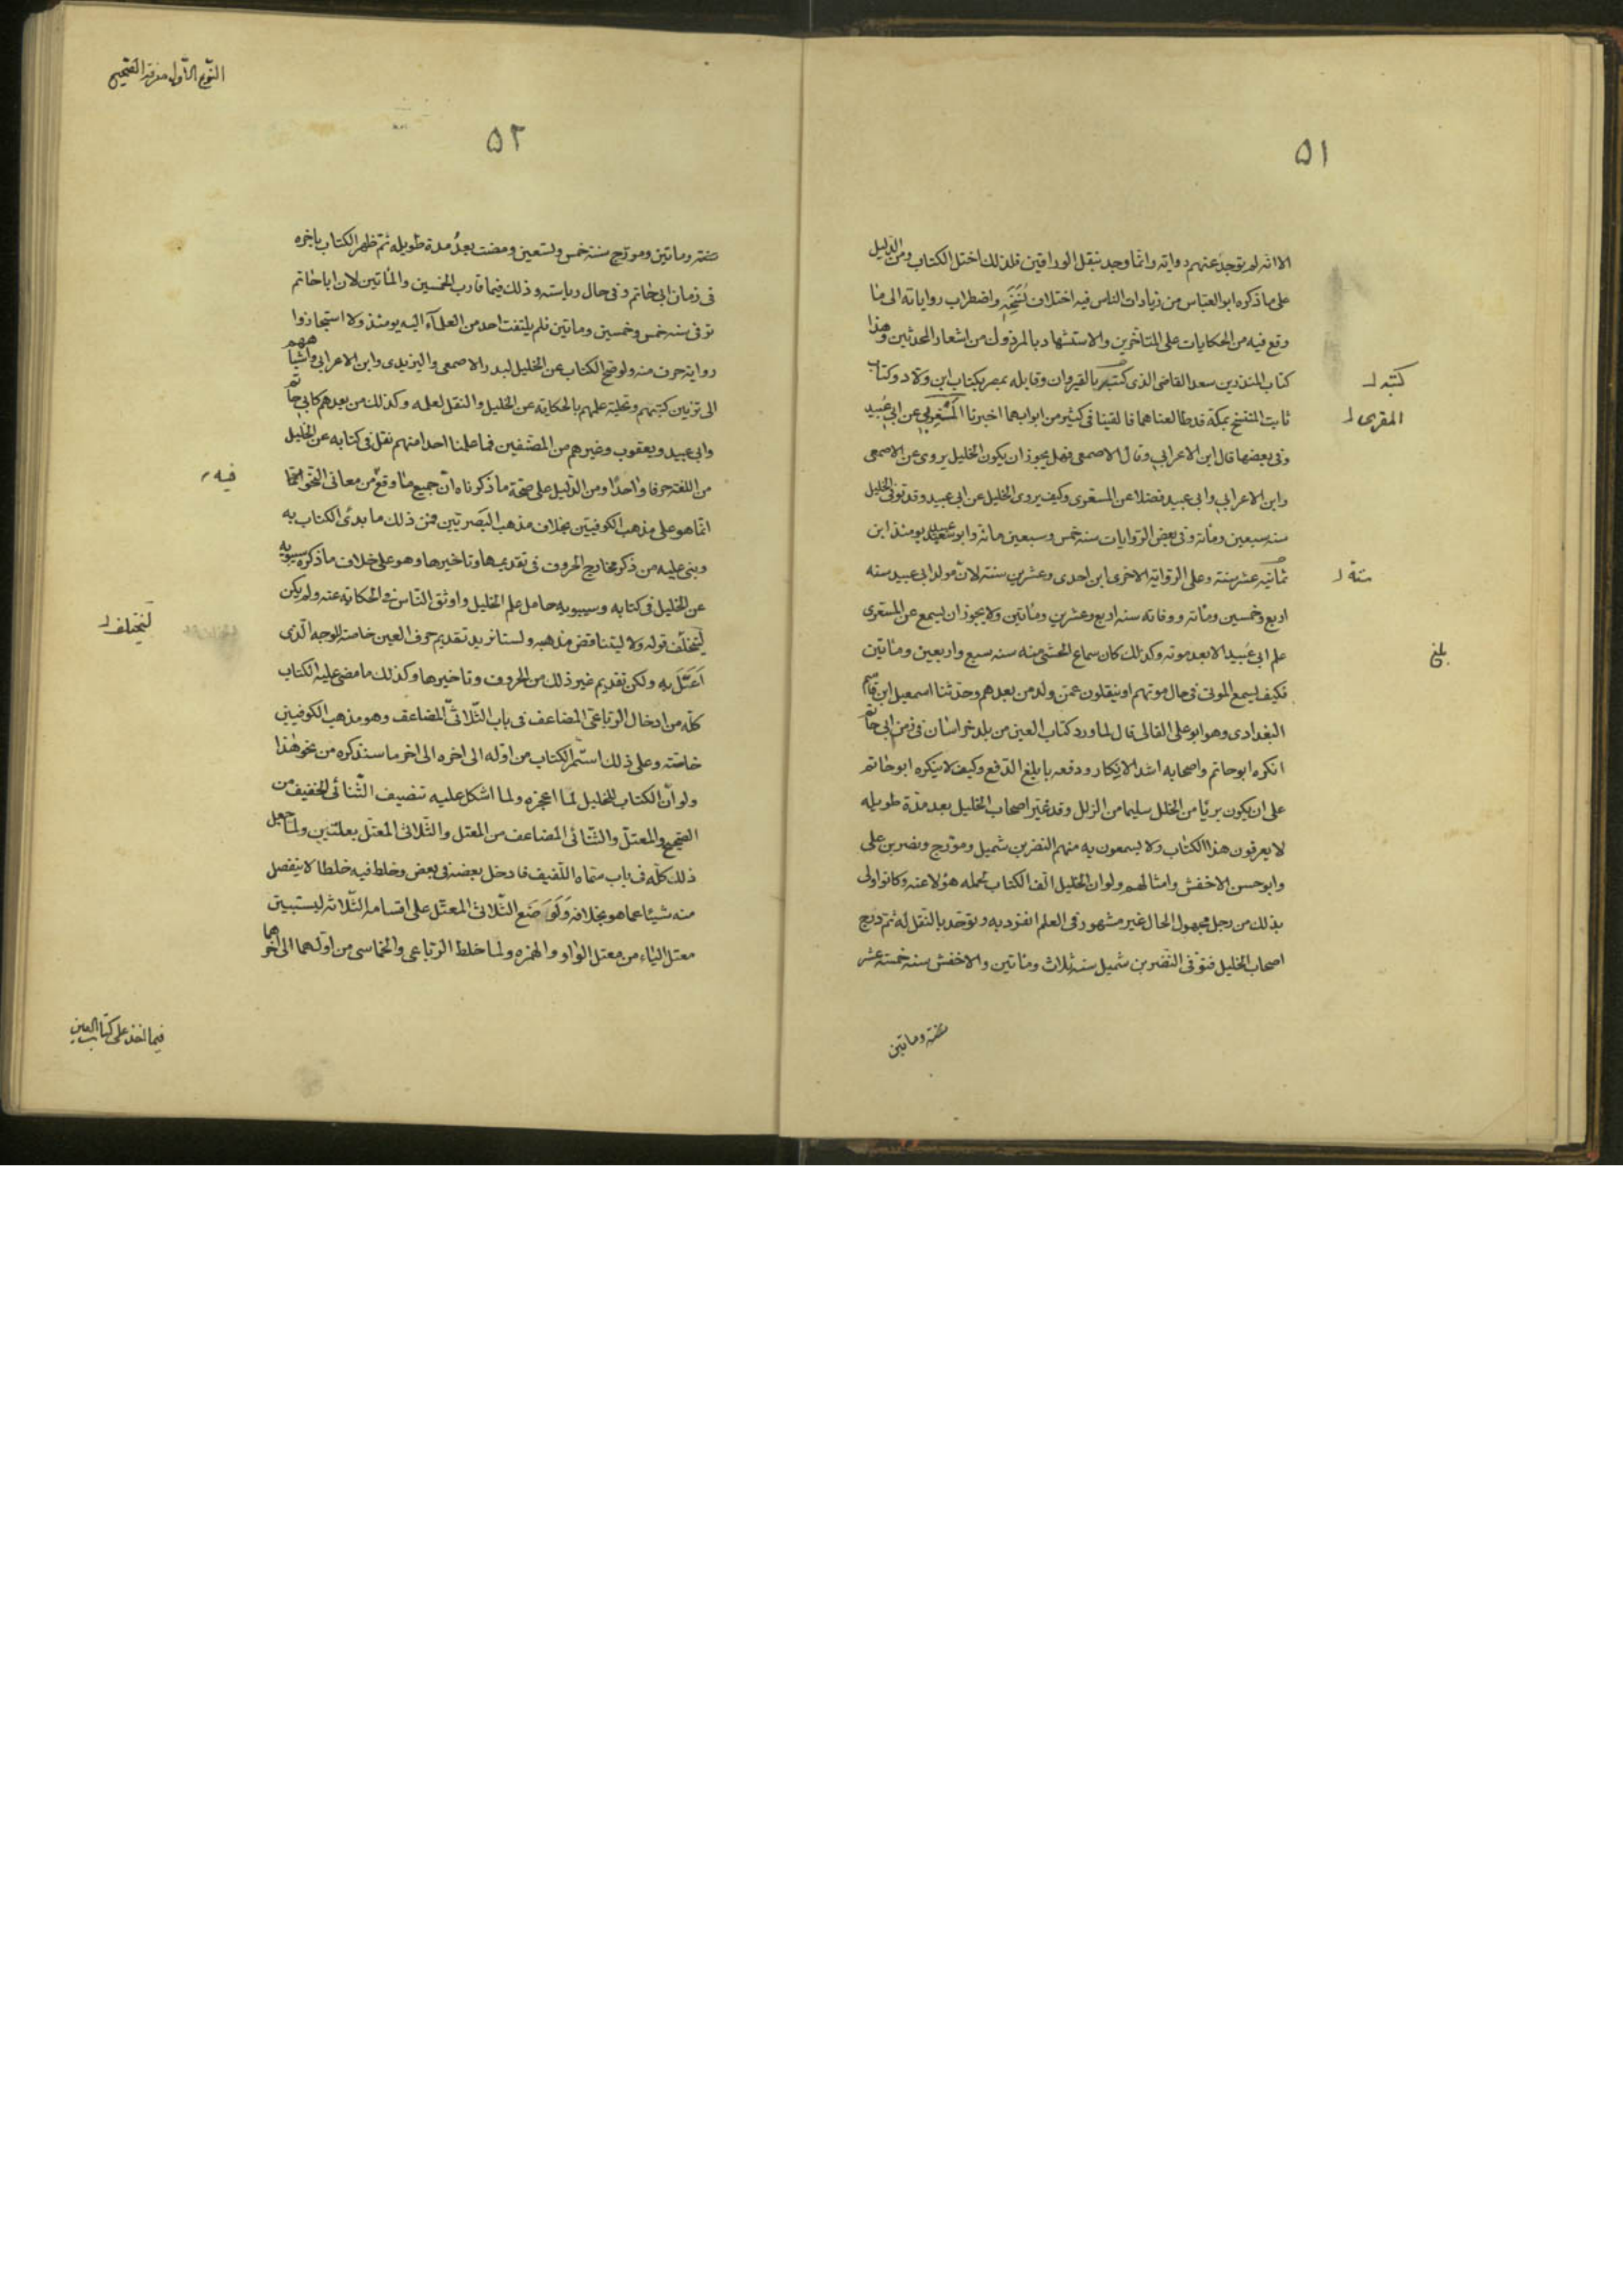 ٥١
الا انه لم توجد عنهم رواية وانما وجد بنقل الوراقين فلذلك اختل الكتاب ومن الدليل
على ما ذكره ابو العباس من زيادات الناس فيه اختلاف نُسَخِه واضطراب رواياته الى ما
وقع فيه من الحكايات على المتاخرين والاستشهاد بالمرذول من اشعار المحدثين وهذا
كتاب المنذر بن سعد القاضى الذى كتبه بالقيروان وقابله بمصر بكتاب ابن ولاد وكتاب
كتبه
ثابت المنتسخ بمكة قد طالعناهما فالفينا فى كثير من ابوابهما اخبرنا عن ابى عُبيد
المقرى
وفى بعضها قال ابن الاعرابى وقال الاصمعى فهل يجوز ان يكون الخليل يروى عن الاصمعى
وابن الاعرابى وابى عبيد فضلا عن المسعرى وكيف يروى الخليل عن ابى عبيد وقد توفى الخليل
سنة سبعين ومائة وفى بعض الروايات سنة خمس وسبعين مائة وابو عبيد يومئذ ابن
ثمانية عشر سنة وعلى الرواية الاخرى ابن احدى وعشرين سنة لان مولد ابى عبيد سنة
اربع وخمسين ومائة ووفاته سنة اربع وعشرين ومائتين ولا يجوز ان يسمع عن المسعرى
علم ابى عُبيد الا بعد موته وكذلك كان سماع الخشنى منه سنة سبع واربعين ومائتين
بلغ
فكيف يسمع الموتى فى حال موتهم او ينقلون عمن ولد من بعدهم وحدثنا اسمعيل ابن قاسم
البغدادى وهو ابو على القالى قال لما ورد كتاب العين من بلد خراسان فى زمن ابى حاتم
انكره ابو حاتم واصحابه اشد الانكار ودفعه بابلغ الدفع وكيف لا ينكره ابو حاتم
على ان يكون بريئا من الخلل سليما من الزلل وقد غبر اصحاب الخليل بعد مدة طويله
لا يعرفون هذا الكتاب ولا يسمعون به منهم النضر بن شميل ومورج ونصر بن على
وابو حسن الاخفش وامثالهم ولو ان الخليل الف الكتاب لحمله هولا عنه وكانوا اولى
بذلك من رجل مجهول الحال غير مشهور فى العلم انفرد به وتوحد بالنقل له ثم درج
اصحاب الخليل فتوفى النضر بن شميل سنة ثلاث ومائتين والاخفش سنة خمسة عشر
ومائتين
النوع الاول معرفة الصحيح
٥٢
ومائتين ومورج سنة خمس وتسعين ومضت بعدُ مدة طويله ثم ظهر الكتاب باخره
فى زمان ابى حاتم وفى حال رياسته وذلك فيما قارب الخمسين والمائتين لان ابا حاتم
توفى سنة خمس وخمسين ومائتين فلم يلتفت احد من العلماء اليه يومئذ ولا استجازوا
رواية حرف منه ولو صح الكتاب عن الخليل لبدر الاصمعى واليزيدى وابن الاعرابى واشباههم
الى تزيين كتبهم وتحلية علمهم بالحكاية عن الخليل والنقل لعلمه وكذلك من بعدهم كابى حاتم
وابى عبيد ويعقوب وغيرهم من المصنفين فما علمنا احدا منهم نقل فى كتابه عن الخليل
من اللغة حرفا واحدًا ومن الدليل على صحة ما ذكرناه ان جميع ما وقع من معانى النحو انما
فيه
انما هو على مذهب الكوفيين بخلاف مذهب البصريين فمن ذلك ما بدئ الكتاب به
وبنى عليه من ذكر مخارج الحروف فى تقديمها وتاخيرها وهو على خلاف ما ذكره سيبويه
عن الخليل فى كتابه وسيبويه حامل علم الخليل واوثق الناس فى الحكاية عنه ولم يكن
ليختلف قوله ولا ليتناقض مذهبه ولسنا نريد تقديم حرف العين خاصة للوجه الذى
ليختلف
اعتل به ولكن تقديم غير ذلك من الحروف وتاخيرها وكذلك ما مضى عليه الكتاب
كله من ادخال الرباعى المضاعف فى باب الثلاثى المضاعف وهو مذهب الكوفيين
خاصة وعلى ذلك استمر الكتاب من اوله الى اخره الى اخر ما سنذكره من نحو هذا
ولو ان الكتاب للخليل لما اعجزه ولما اشكل عليه تثقيف الثنائى الخفيف من
الصحيح والمعتل والثنائى المضاعف من المعتل والثلاثى المعتل بعلتين ولما جعل
ذلك كله فى باب سماه اللفيف فادخل بعضه فى بعض وخلط فيه خلطا لا ينفصل
منه شيئا عما هو بخلافه ولو وضع الثلاثى المعتل على اقسامه الثلاثه ليستبين
معتل الياء من معتل الواو والهمزه ولما خلط الرباعى والخماسى من اولهما الى اخرهما
فيما اخذ على كتاب العين